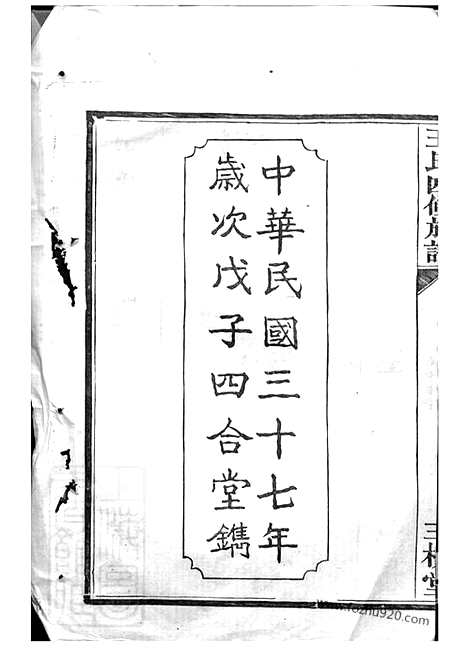 中華民國三十七年
歲次戊子四合堂鐫
王氏四修族譜
三槐堂
www.fozhu920.com